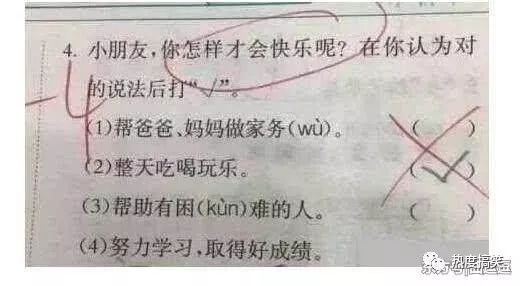 4. 小朋友,你怎样才会快乐呢?在你认为对
的说法后打“√”。
-4
(1)帮爸爸、妈妈做家务(wù)。 ( )
(2)整天吃喝玩乐。 (√)
(3)帮助有困(kùn)难的人。 ( )
(4)努力学习,取得好成绩。
热度搞笑